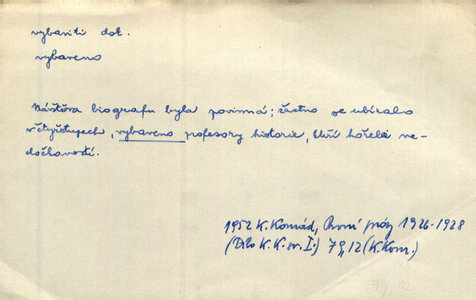 vybaviti dok.
vybaveno
Návštěva biografu byla povinná; žactvo se ubíralo
v čtyřstupech, vybaveno profesory historie, kteří hořeli ne-
dočkavostí.
1952 K. Konrád, První prózy 1926-1928
(Dílo K. K. sv. I.) 79, 12 (K. Kom.)
79 12